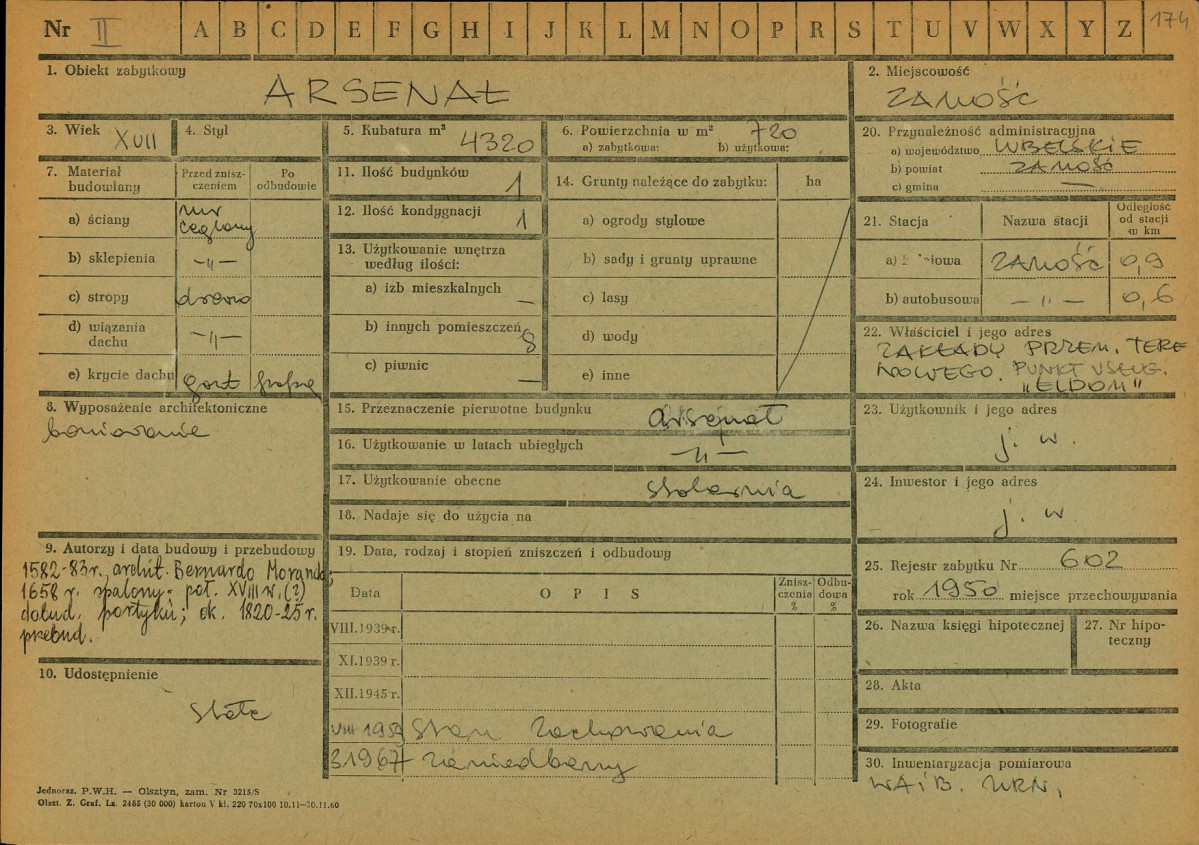 Nr II A B C D E F G H I J K L M N O P R S T U V W X Y Z 174
1. Obiekt zabytkowy
ARSENAŁ
2. Miejscowość
ZAMOŚĆ
3. Wiek XVII
4. Styl
5. Kubatura m³ 4320
6. Powierzchnia w m² 720
a) zabytkowa: b) użytkowa:
20. Przynależność administracyjna
a) województwo LUBELSKIE
b) powiat ZAMOŚĆ
c) gmina —
7. Materiał budowlany
Przed zniszczeniem
Po odbudowie
a) ściany mur ceglany
b) sklepienia —"—
c) stropy drewno
d) wiązania dachu —"—
e) krycie dachu gont
11. Ilość budynków 1
12. Ilość kondygnacji 1
13. Użytkowanie wnętrza według ilości:
a) izb mieszkalnych —
b) innych pomieszczeń 8
c) piwnic —
14. Grunty należące do zabytku: ha
a) ogrody stylowe
b) sady i grunty uprawne
c) lasy
d) wody
e) inne
21. Stacja
Nazwa stacji
Odległość od stacji w km
a) ZAMOŚĆ 0,9
b) autobusowa —"— 0,6
22. Właściciel i jego adres
ZAKŁADY PRZEM. TERE
NOWEGO. PUNKT USŁUG.
"ELDOM"
8. Wyposażenie architektoniczne
boniowanie
15. Przeznaczenie pierwotne budynku arsenał
16. Użytkowanie w latach ubiegłych —"—
17. Użytkowanie obecne stolarnia
18. Nadaje się do użycia na
23. Użytkownik i jego adres
j. w.
24. Inwestor i jego adres
j. w
9. Autorzy i data budowy i przebudowy
1582-83 r. archit. Bernardo Morando;
1658 r. spalony; poł. XVIII w. (?)
dobud. portyku; ok. 1820-25 r.
przebud.
19. Data, rodzaj i stopień zniszczeń i odbudowy
Data
OPIS
Zniszczenia %
Odbudowa %
VIII.1939 r.
XI.1939 r.
XII.1945 r.
VIII 1959 Stan zachowania
31967 zaniedbany
25. Rejestr zabytku Nr 602
rok 1950 miejsce przechowywania
26. Nazwa księgi hipotecznej
27. Nr hipoteczny
28. Akta
29. Fotografie
30. Inwentaryzacja pomiarowa
WAiB.
10. Udostępnienie
stałe
Jednoraz. P.W.H. — Olsztyn, zam. Nr 3215/S
Olszt. Z. Graf. Lz. 2485 (30 000) karton V kl. 220 70x100 10.11—30.11.60